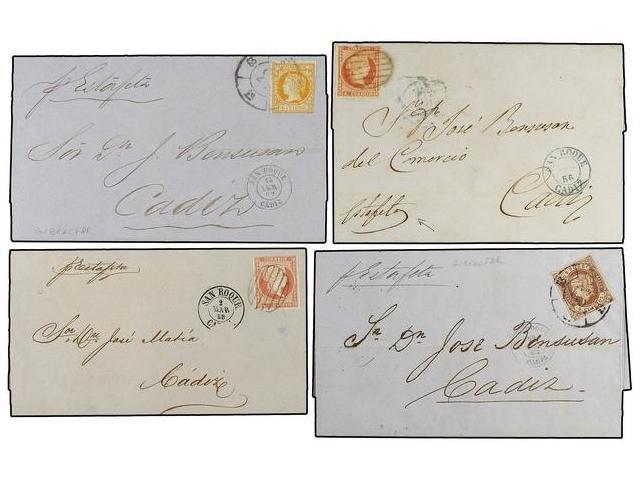 p Estafeta
Sor Dn J. Bensusan
Cadiz
SAN ROQUE
CADIZ
GIBRALTAR
Sr Dn José Bensusan
del Comercio
Cadiz
Estafeta
SAN ROQUE
56
CADIZ
p Estafeta
SAN ROQUE
2
MAR
58
Sor Dn José Matia
Cádiz
p Estafeta
GIBRALTAR
Sr Dn Jose Bensusan
Cadiz